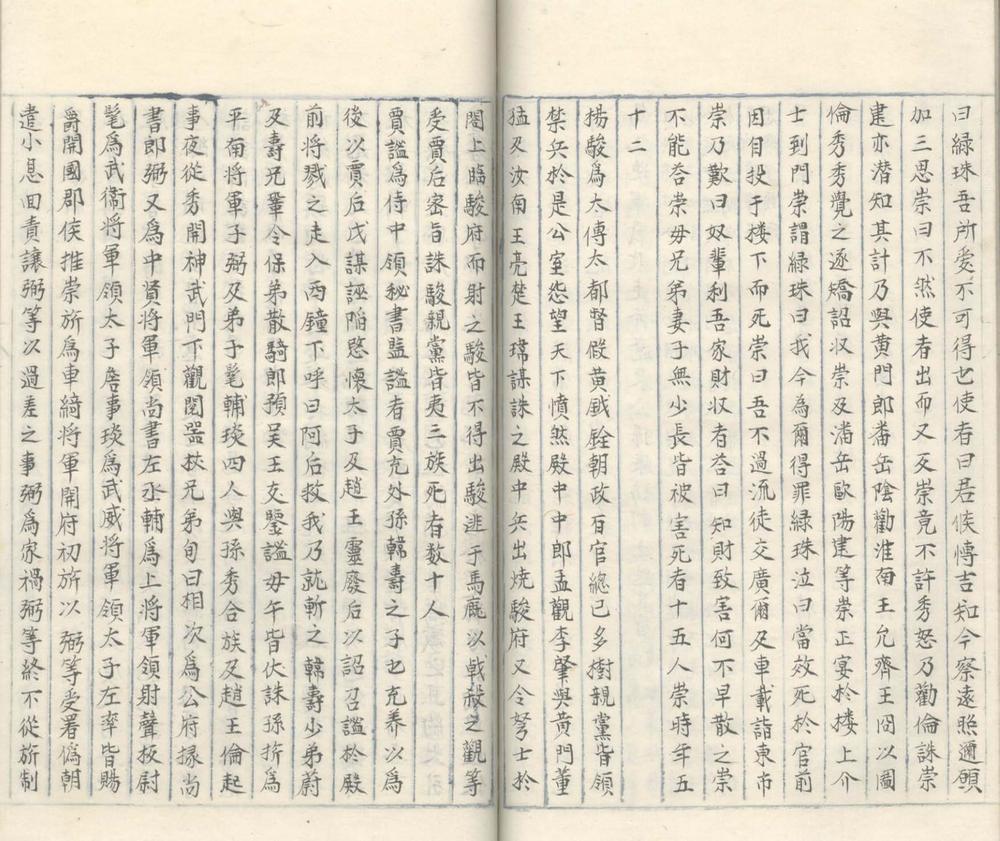 曰緑珠吾所愛不可得也使者曰君侯博吉知今察遠照邇願
加三思崇曰不然使者出而又反崇竟不許秀怒乃勸倫誅崇
建亦潜知其計乃與黄門郎潘岳陰勸淮南王允齊王冏以圖
倫秀秀覺之遂矯詔収崇及潘岳歐陽建等崇正宴於楼上介
士到門崇謂緑珠曰我今為爾得罪緑珠泣曰當效死於官前
因自投于楼下而死崇曰吾不過流徒交廣爾及車載詣東市
崇乃歎曰奴輩利吾家財収者荅曰知財致害何不早散之崇
不能荅崇毋兄弟妻子無少長皆被害死者十五人崇時年五
十二
楊駿為太傅太都督假黄鉞銓朝政百官總已多樹親黨皆領
禁兵於是公室怨望天下憤然殿中中郎孟觀李肇與黄門董
猛又汝南王亮楚王瑋謀誅之殿中兵出焼駿府又令弩士於
閣上臨駿府而射之駿皆不得出駿逃于馬廐以戟殺之觀等
受賈后密旨誅駿親黨皆夷三族死者数十人
賈謐為侍中領秘書監謐者賈充外孫韓壽之子也充养以為
後以賈后戊謀誣陷愍懷太子及趙王靈廢后以詔召謐於殿
前将戮之走入西鐘下呼曰阿后救我乃就斬之韓壽少弟蔚
及壽兄鞏令保弟散騎郎預吴王友鑒謐毋午皆伏誅孫旂為
平南将軍子弼及弟子髦輔琰四人與孫秀合族及趙王倫起
事夜從秀開神武門下觀閲噐械兄弟旬日相次為公府掾尚
書郎弼又為中賢将軍領尚書左丞輔為上将軍領射聲挍尉
髦為武衞将軍領太子詹事琰為武威将軍領太子左率皆賜
爵開國郡侯推崇旂為車綺将軍開府初旂以弼等受署偽朝
遣小息回責讓弼等以過差之事弼為家禍弼等終不從旂制